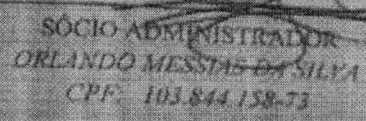 SÓCIO ADMINISTRADOR
ORLANDO MESSIAS DA SILVA
CPF: 103.844.158-73